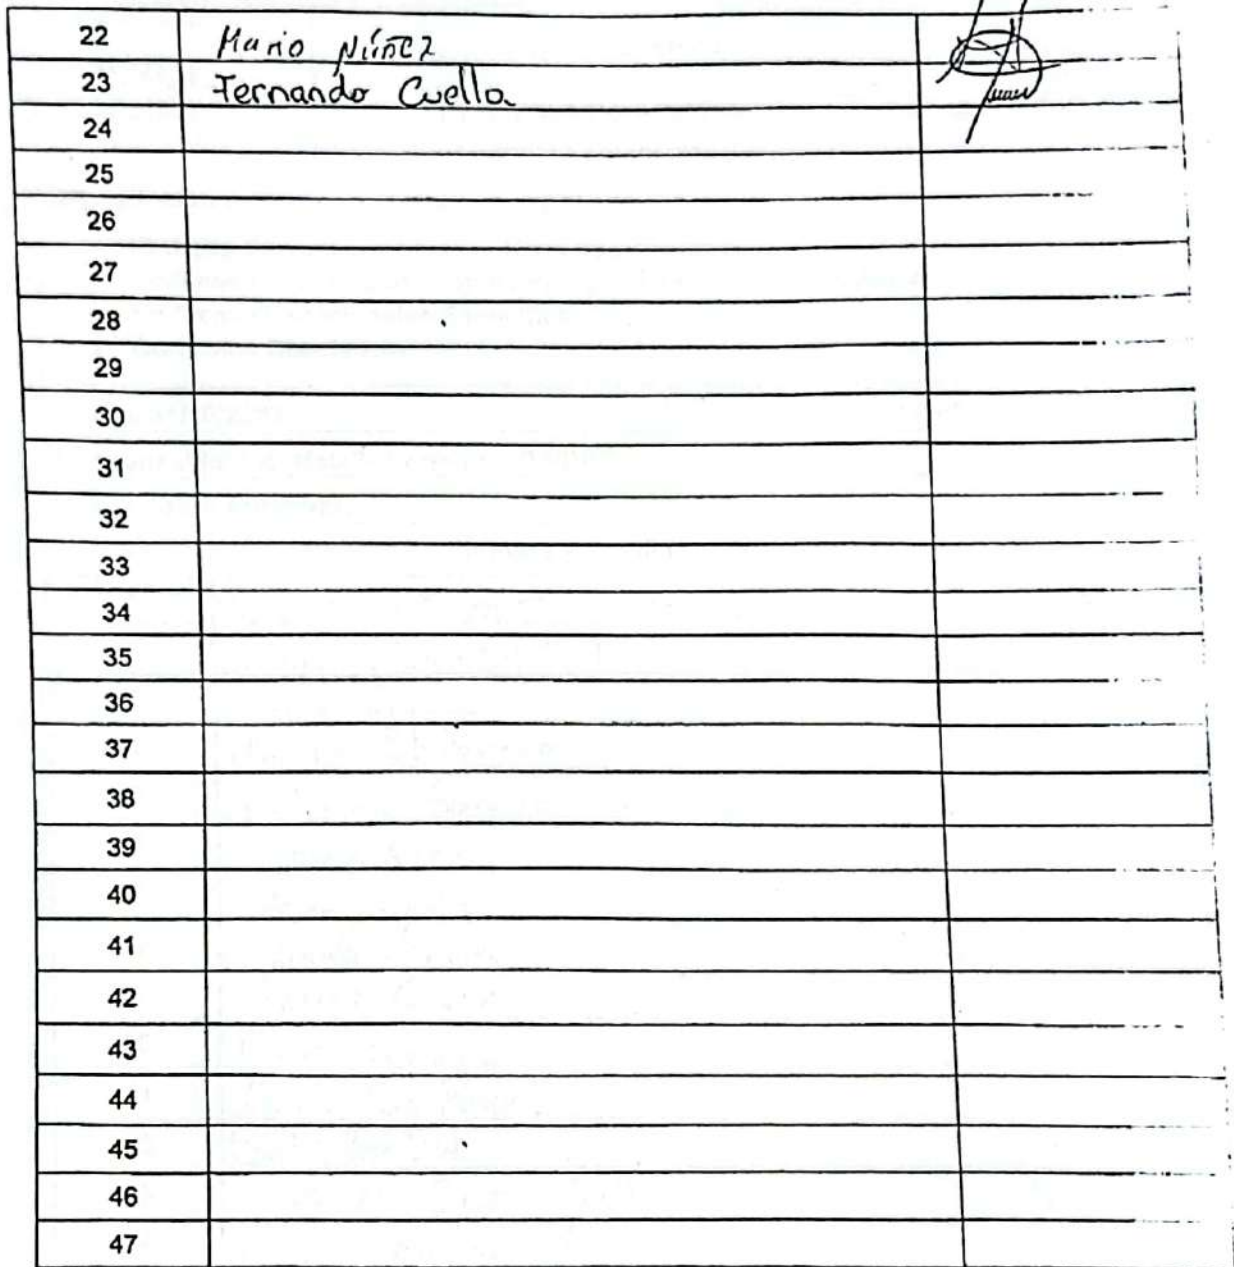 22 Mario Núñez
23 Fernando Cuella
24
25
26
27
28
29
30
31
32
33
34
35
36
37
38
39
40
41
42
43
44
45
46
47